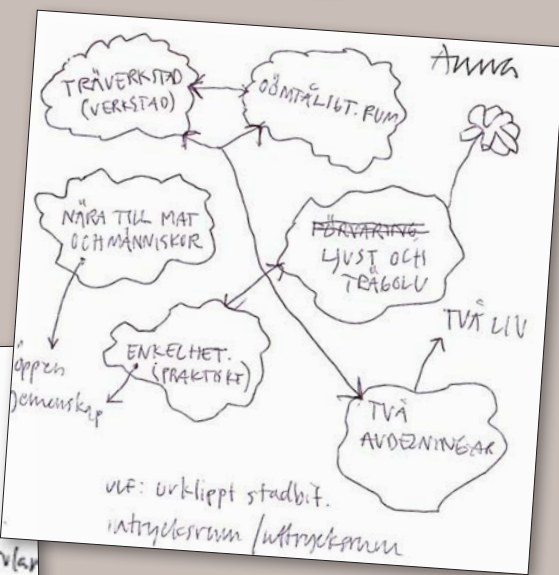 Anna
TRÄVERKSTAD
(VERKSTAD)
OÖMTÅLIGT. RUM
NÄRA TILL MAT
OCH MÄNNISKOR
FÖRVARING
LJUST OCH
TRÄGOLV
TVÅ LIV
öppen
gemenskap
ENKELHET.
(PRAKTISKT)
TVÅ
AVDELNINGAR
urklippt stadbit.
intrycksrum / uttrycksrum